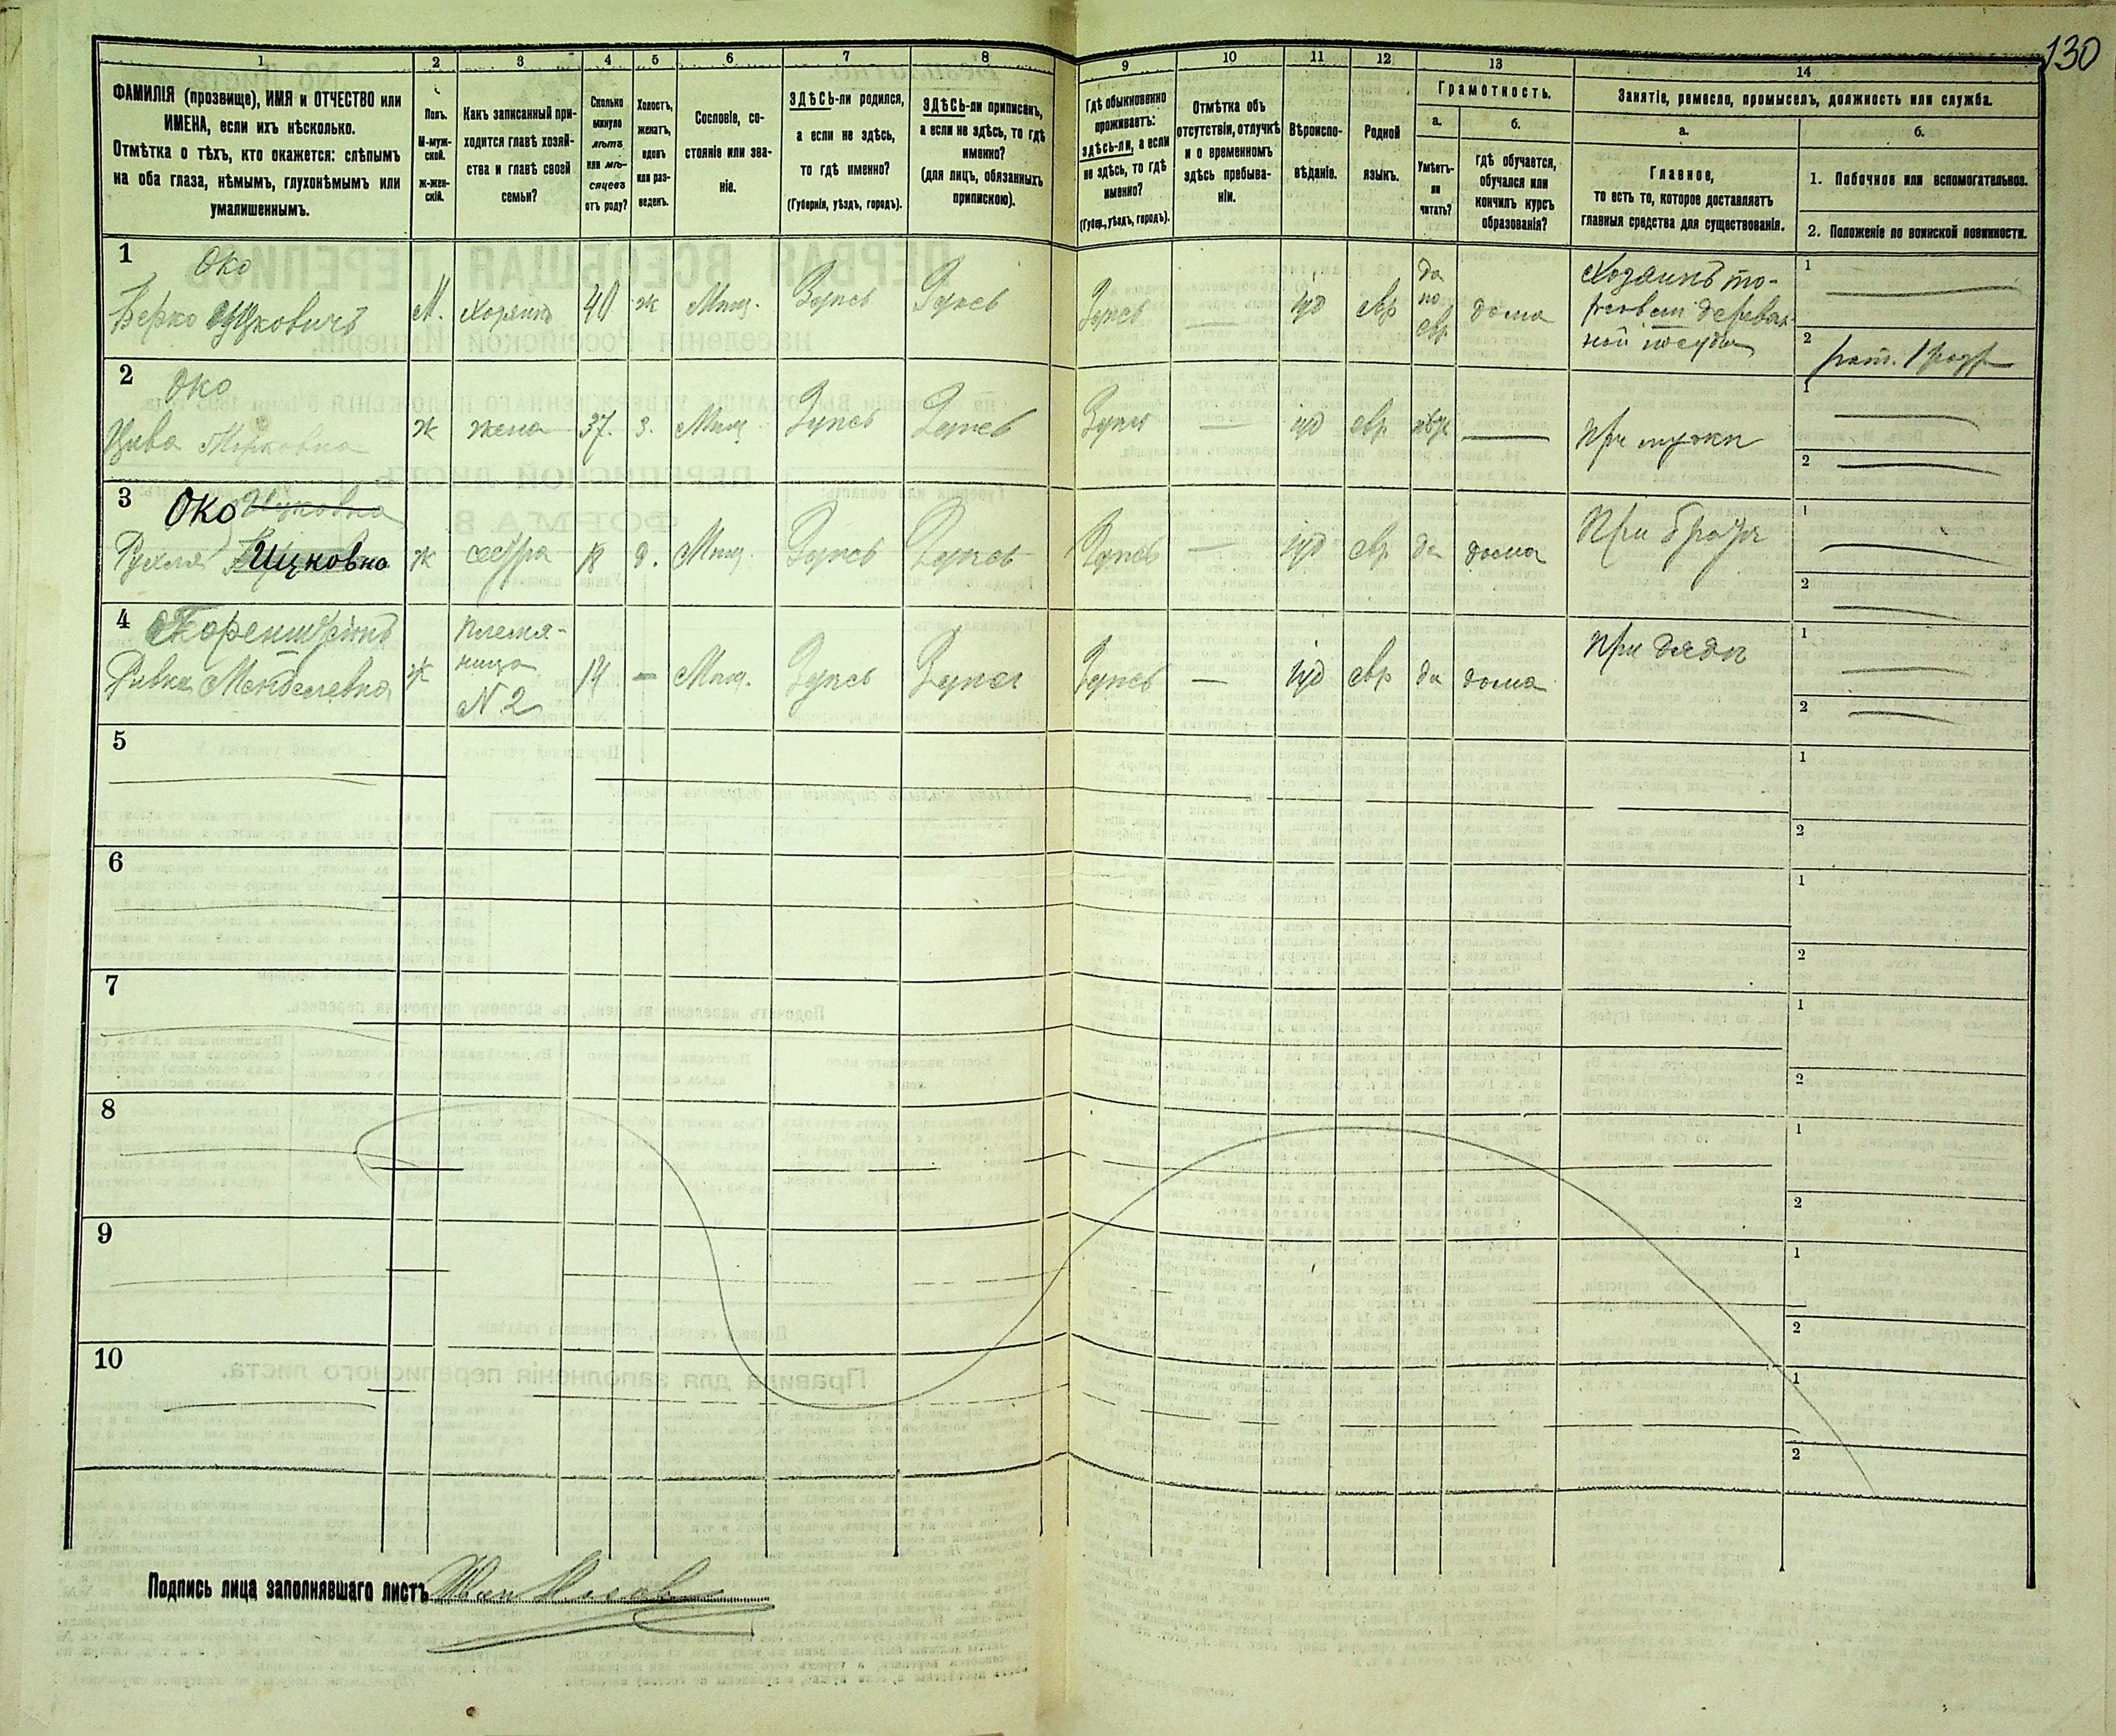 130
1
2
3
4
5
6
7
8
9
10
11
12
13
14
ФАМИЛІЯ (прозвище), ИМЯ и ОТЧЕСТВО или
ИМЕНА, если ихъ нѣсколько.
Отмѣтка о тѣхъ, кто окажется: слѣпымъ
на оба глаза, нѣмымъ, глухонѣмымъ или
умалишеннымъ.
Полъ.
М-муж-
ской.
Ж-жен-
скій.
Какъ записанный при-
ходится главѣ хозяй-
ства и главѣ своей
семьи?
Сколько
минуло
лѣтъ
или мѣ-
сяцевъ
отъ роду?
Холостъ,
женатъ,
вдовъ
или раз-
веденъ.
Сословіе, со-
стояніе или зва-
ніе.
ЗДѢСЬ-ли родился,
а если не здѣсь,
то гдѣ именно?
(Губернія, уѣздъ, городъ).
ЗДѢСЬ-ли приписанъ,
а если не здѣсь, то гдѣ
именно?
(для лицъ, обязанныхъ
припискою).
Гдѣ обыкновенно
проживаетъ:
здѣсь-ли, а если
не здѣсь, то гдѣ
именно?
(Губер., уѣздъ, городъ).
Отмѣтка объ
отсутствіи, отлучкѣ
и о временномъ
здѣсь пребыва-
ніи.
Вѣроиспо-
вѣданіе.
Родной
языкъ.
Грамотность.
а.
Умѣетъ-
ли
читать?
б.
гдѣ обучается,
обучался или
кончилъ курсъ
образованія?
Занятіе, ремесло, промыселъ, должность или служба.
а.
Главное,
то есть то, которое доставляетъ
главныя средства для существованія.
б.
1. Побочное или вспомогательное.
2. Положеніе по воинской повинности.
1
Око
Берко Ицковичъ
М.
Хозяинъ
40
ж
Мѣщ.
Здѣсь
Здѣсь
Здѣсь
іуд
евр
да
по
евр
дома
Хозяинъ то-
рговли деревян-
ной посуды
1
2
2
Око
Цива
ж
жена
37.
з.
Мѣщ.
Здѣсь
Здѣсь
Здѣсь
іуд
евр
При мужѣ
1
2
3
Око Ицковна
Рухля Ицковна
ж
сестра
18
д.
Мѣщ.
Здѣсь
Здѣсь
Здѣсь
іуд
евр
да
дома
При братѣ
1
2
4
Ривка Менделевна
ж
племя-
ница
N 2
14
Мѣщ.
Здѣсь
Здѣсь
Здѣсь
іуд
евр
да
дома
При дядѣ
1
2
5
1
2
6
1
2
7
1
2
8
1
2
9
1
2
10
1
2
Подпись лица заполнявшаго листъ